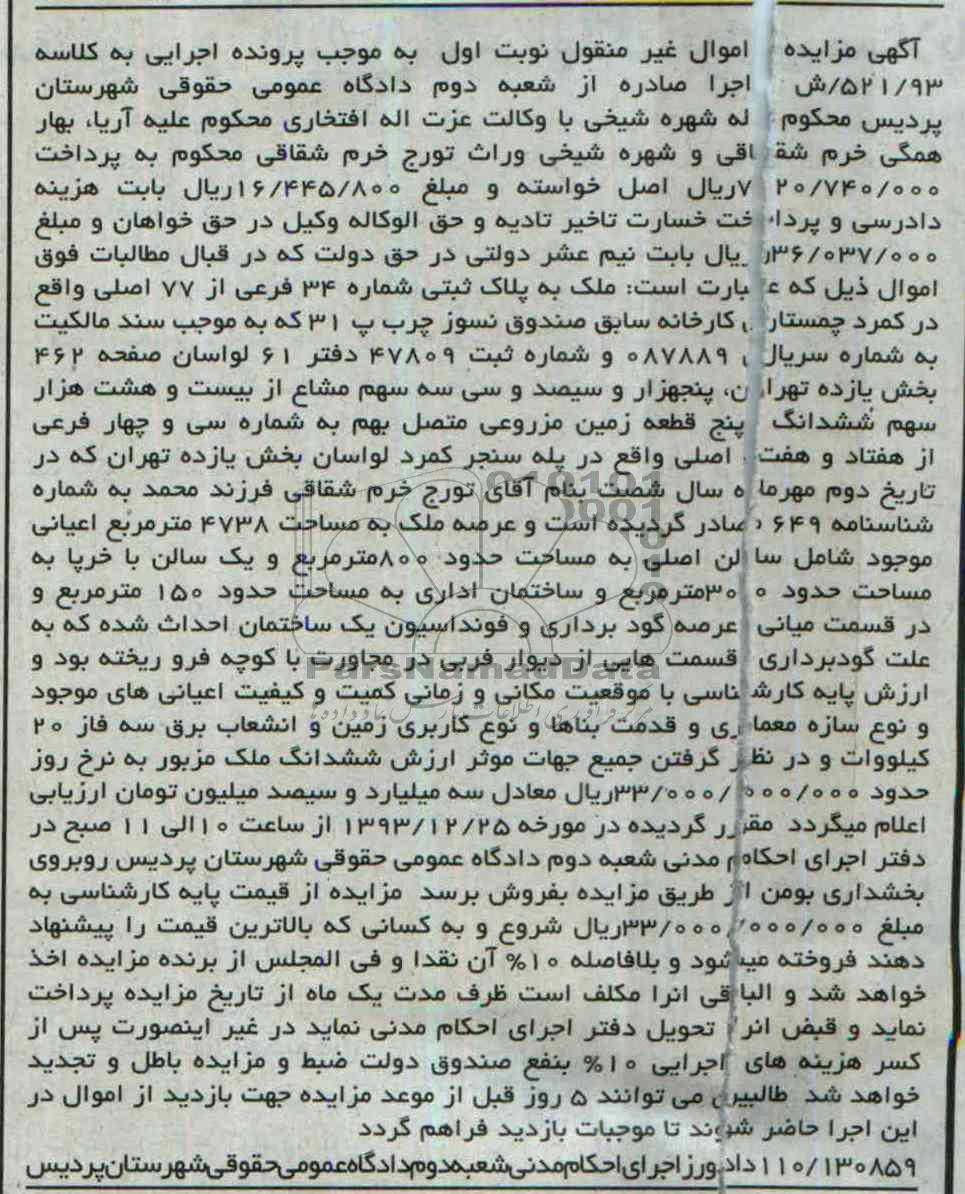 آگهی مزایده اموال غیر منقول نوبت اول به موجب پرونده اجرایی به کلاسه
۵۲۱/۹۳/ش اجرا صادره از شعبه دوم دادگاه عمومی حقوقی شهرستان
پردیس محکوم له شهره شیخی با وکالت عزت اله افتخاری محکوم علیه آریا، بهار
همگی خرم شقاقی و شهره شیخی وراث تورج خرم شقاقی محکوم به پرداخت
۷۲۰/۷۴۰/۰۰۰ریال اصل خواسته و مبلغ ۱۶/۴۴۵/۸۰۰ریال بابت هزینه
دادرسی و پرداخت خسارت تاخیر تادیه و حق الوکاله وکیل در حق خواهان و مبلغ
۳۶/۰۳۷/۰۰۰ریال بابت نیم عشر دولتی در حق دولت که در قبال مطالبات فوق
اموال ذیل که عبارت است: ملک به پلاک ثبتی شماره ۳۴ فرعی از ۷۷ اصلی واقع
در کمرد چمستان کارخانه سابق صندوق نسوز چرب پ ۳۱ که به موجب سند مالکیت
به شماره سریال ۰۸۷۸۸۹ و شماره ثبت ۴۷۸۰۹ دفتر ۶۱ لواسان صفحه ۴۶۲
بخش یازده تهران، پنجهزار و سیصد و سی سه سهم مشاع از بیست و هشت هزار
سهم شُشدانگ پنج قطعه زمین مزروعی متصل بهم به شماره سی و چهار فرعی
از هفتاد و هفت اصلی واقع در پله سنجر کمرد لواسان بخش یازده تهران که در
تاریخ دوم مهرماه سال شصت بنام آقای تورج خرم شقاقی فرزند محمد به شماره
شناسنامه ۶۴۹ صادر گردیده است و عرصه ملک به مساحت ۴۷۳۸ مترمربع اعیانی
موجود شامل سالن اصلی به مساحت حدود ۸۰۰مترمربع و یک سالن با خرپا به
مساحت حدود ۳۰۰مترمربع و ساختمان اداری به مساحت حدود ۱۵۰ مترمربع و
در قسمت میانی عرصه گود برداری و فونداسیون یک ساختمان احداث شده که به
علت گودبرداری قسمت هایی از دیوار فربی در مجاورت با کوچه فرو ریخته بود و
ارزش پایه کارشناسی با موقعیت مکانی و زمانی کمیت و کیفیت اعیانی های موجود
و نوع سازه معماری و قدمت بناها و نوع کاربری زمین و انشعاب برق سه فاز ۲۰
کیلووات و در نظر گرفتن جمیع جهات موثر ارزش ششدانگ ملک مزبور به نرخ روز
حدود ۳۳/۰۰۰/۰۰۰/۰۰۰ریال معادل سه میلیارد و سیصد میلیون تومان ارزیابی
اعلام میگردد مقرر گردیده در مورخه ۱۳۹۳/۱۲/۲۵ از ساعت ۱۰الی ۱۱ صبح در
دفتر اجرای احکام مدنی شعبه دوم دادگاه عمومی حقوقی شهرستان پردیس روبروی
بخشداری بومن از طریق مزایده بفروش برسد مزایده از قیمت پایه کارشناسی به
مبلغ ۳۳/۰۰۰/۰۰۰/۰۰۰ریال شروع و به کسانی که بالاترین قیمت را پیشنهاد
دهند فروخته میشود و بلافاصله ۱۰% آن نقدا و فی المجلس از برنده مزایده اخذ
خواهد شد و الباقی انرا مکلف است ظرف مدت یک ماه از تاریخ مزایده پرداخت
نماید و قبض انرا تحویل دفتر اجرای احکام مدنی نماید در غیر اینصورت پس از
کسر هزینه های اجرایی ۱۰% بنفع صندوق دولت ضبط و مزایده باطل و تجدید
خواهد شد طالبین می توانند ۵ روز قبل از موعد مزایده جهت بازدید از اموال در
این اجرا حاضر شوند تا موجبات بازدید فراهم گردد
۱۱۰/۱۳۰۸۵۹ دادورز اجرای احکام مدنی شعبه دوم دادگاه عمومی حقوقی شهرستان پردیس
ParsNamadData